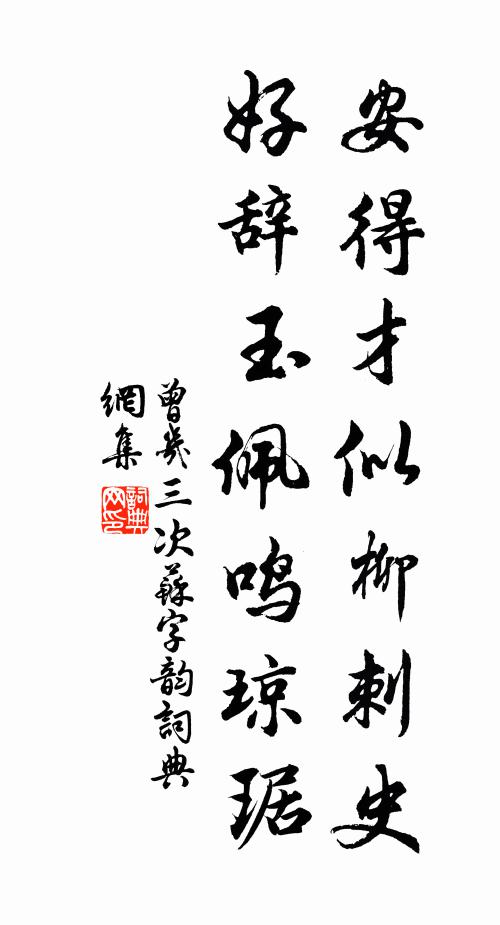 安得才似柳刺史
好辞玉佩鸣琼琚
曾幾三次蘇字韵詞典
網集
詞典
网印